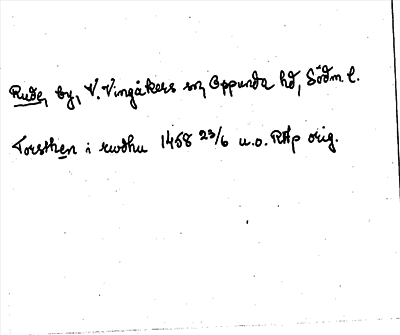 Rude, by, V. Vingåkers sn, Oppunda hd, Södm. l.
Torsthen i rwdhu 1458 23/6 u.o. RAp orig.